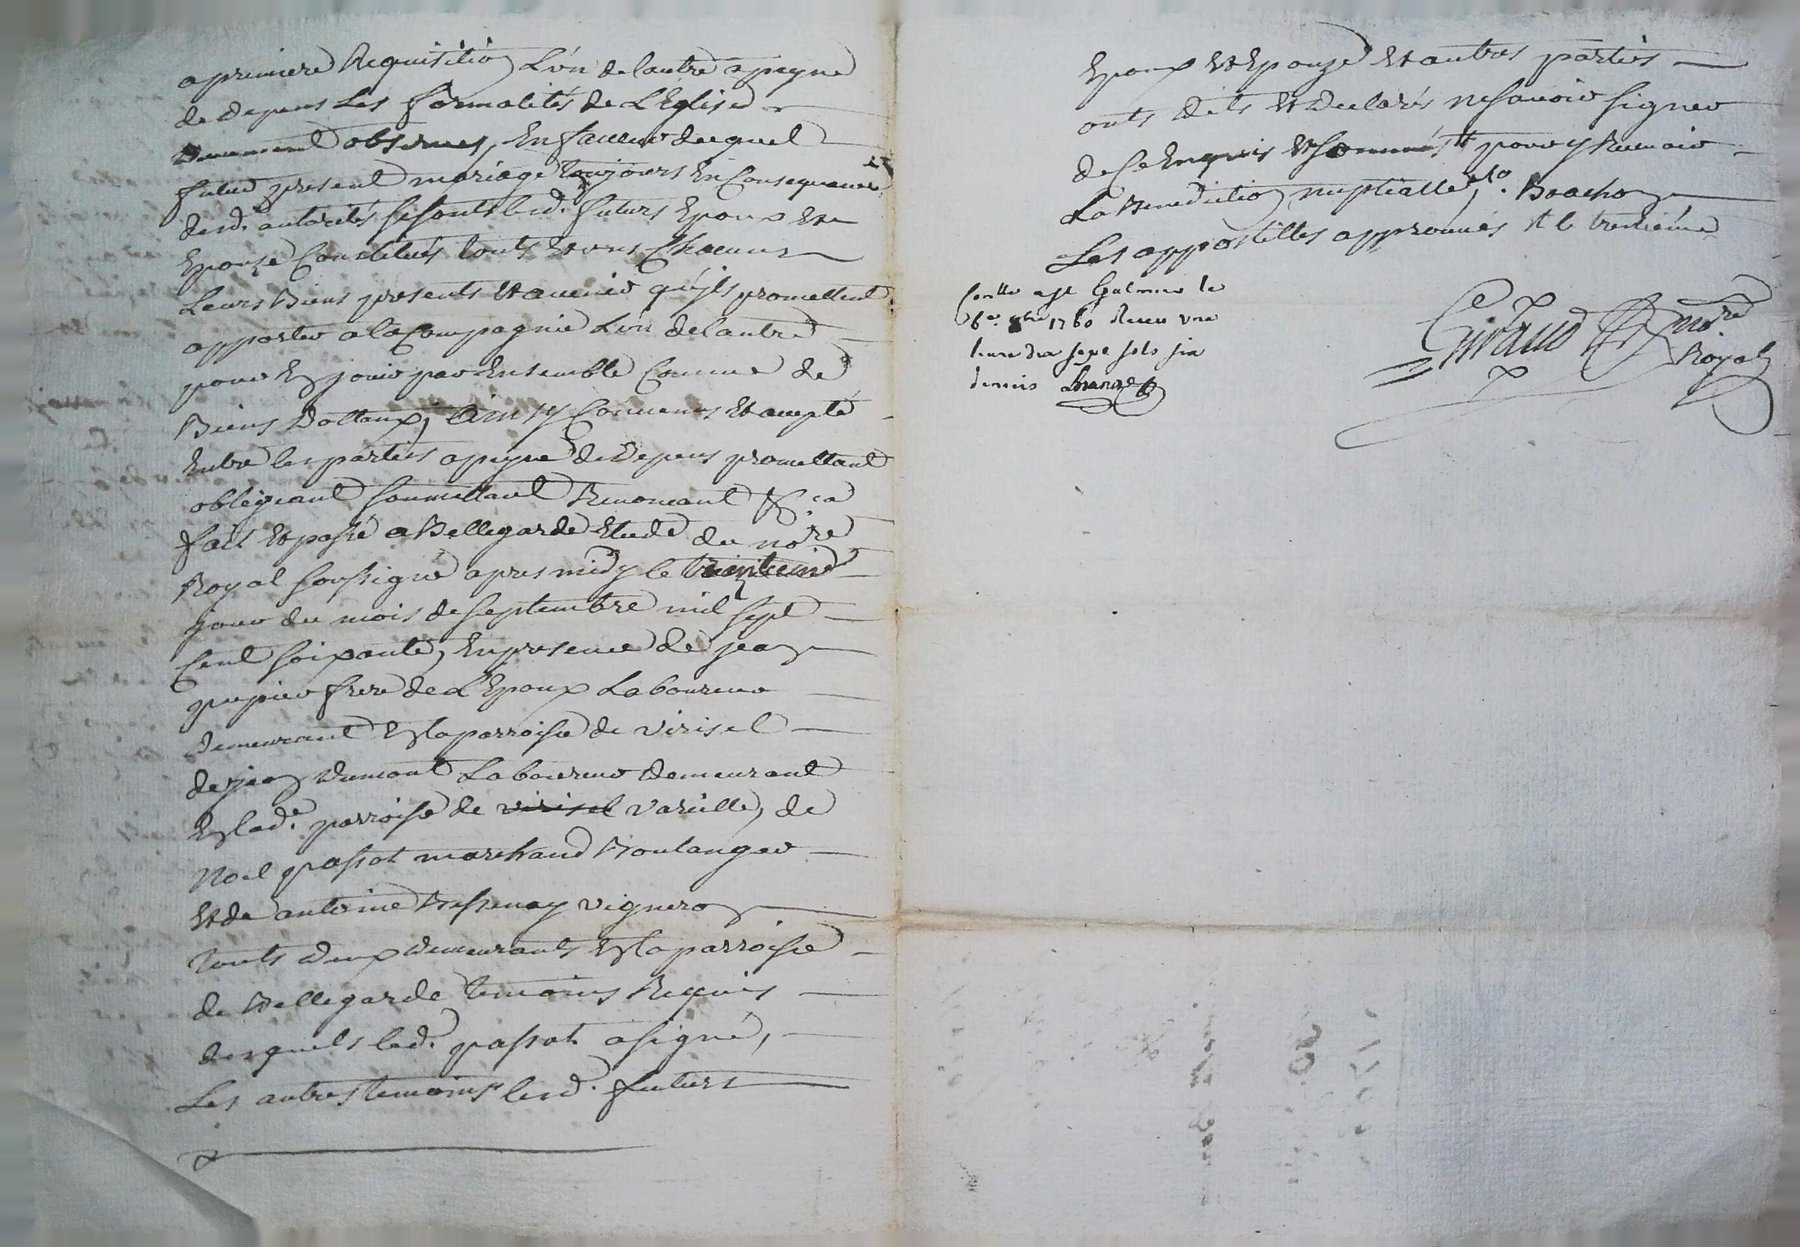 a premiere Requisition L'un de l'autre a peyne
de depens Les formalités de L'Eglise
observees, En faveur duquel
futur present mariage toujours En Consequence
desd. autorités se sonts lesd. futurs Epoux Et
Epouze Constitués touts Et uns Chacuns
Leurs Biens presents Et avenir qu'ils promettent
apporter a la Compagnie L'un de l'autre
pour En jouir par Ensemble Comme de
Biens Dottaux, ainsy Convenus Et accepté
Entre les parties a peyne de Depens promettant
obligeant soumettant Renonceant &ca
fait Et passé a Bellegarde Etude du no.re
Royal soussigné apres midy le
jour du mois de septembre mil sept
Cent soixante, En presence de jean
pupier frere de L'Epoux Laboureur
demeurant En la parroisse de virisel
de jean Dumont Laboureur demeurant
En lad.e parroisse de virisel varille, de
Noel passot marchand Boulanger
Et de antoine vigneron
touts deux demeurants En la parroisse
de Bellegarde temoins Requis
desquels led. passot a signé,
Les autres temoins lesd. futurs
Epoux Et Epouze Et autres parties
onts dits Et Declarés ne savoir signer
de Ce Enquis Et sommés pour y Recevoir
La Benediction nuptialle,
Les appostilles approuvés Et le treizieme
Conllé a St Galmier le
6e 8bre 1760 Receu une
livre dix sept sols six
deniers
Giraud no.re
Royal